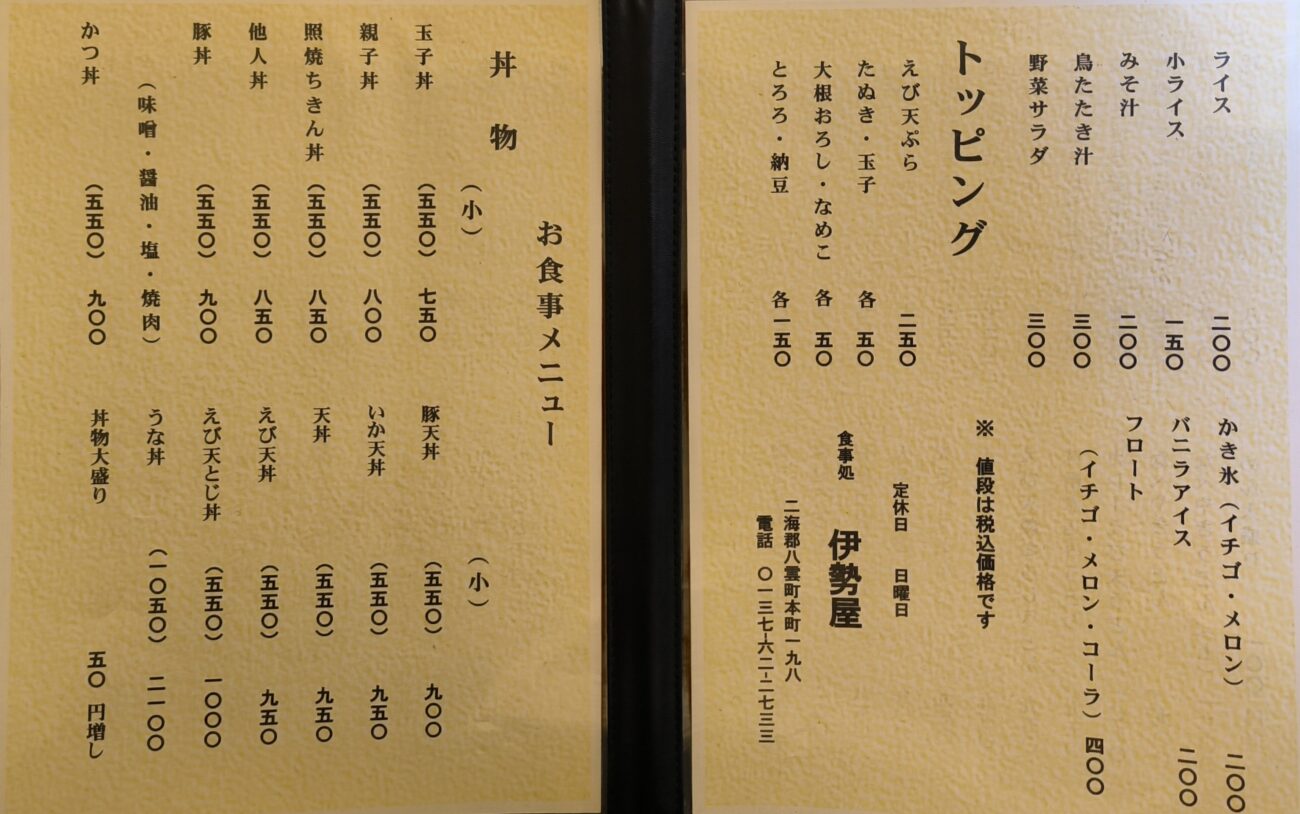 ライス 二〇〇
小ライス 一五〇
みそ汁 二〇〇
鳥たたき汁 三〇〇
野菜サラダ 三〇〇
かき氷（イチゴ・メロン） 二〇〇
バニラアイス 二〇〇
フロート
（イチゴ・メロン・コーラ） 四〇〇
トッピング
えび天ぷら 二五〇
たぬき・玉子 各 五〇
大根おろし・なめこ 各 五〇
とろろ・納豆 各一五〇
※ 値段は税込価格です
定休日 日曜日
食事処 伊勢屋
二海郡八雲町本町一九八
電話 〇一三七-六二-二七三三
お食事メニュー
丼 物
（小）
玉子丼 （五五〇） 七五〇
親子丼 （五五〇） 八〇〇
照焼ちきん丼 （五五〇） 八五〇
他人丼 （五五〇） 八五〇
豚丼 （五五〇） 九〇〇
（味噌・醤油・塩・焼肉）
かつ丼 （五五〇） 九〇〇
（小）
豚天丼 （五五〇） 九〇〇
いか天丼 （五五〇） 九五〇
天丼 （五五〇） 九五〇
えび天丼 （五五〇） 九五〇
えび天とじ丼 （五五〇） 一〇〇〇
うな丼 （一〇五〇） 二一〇〇
丼物大盛り 五〇 円増し